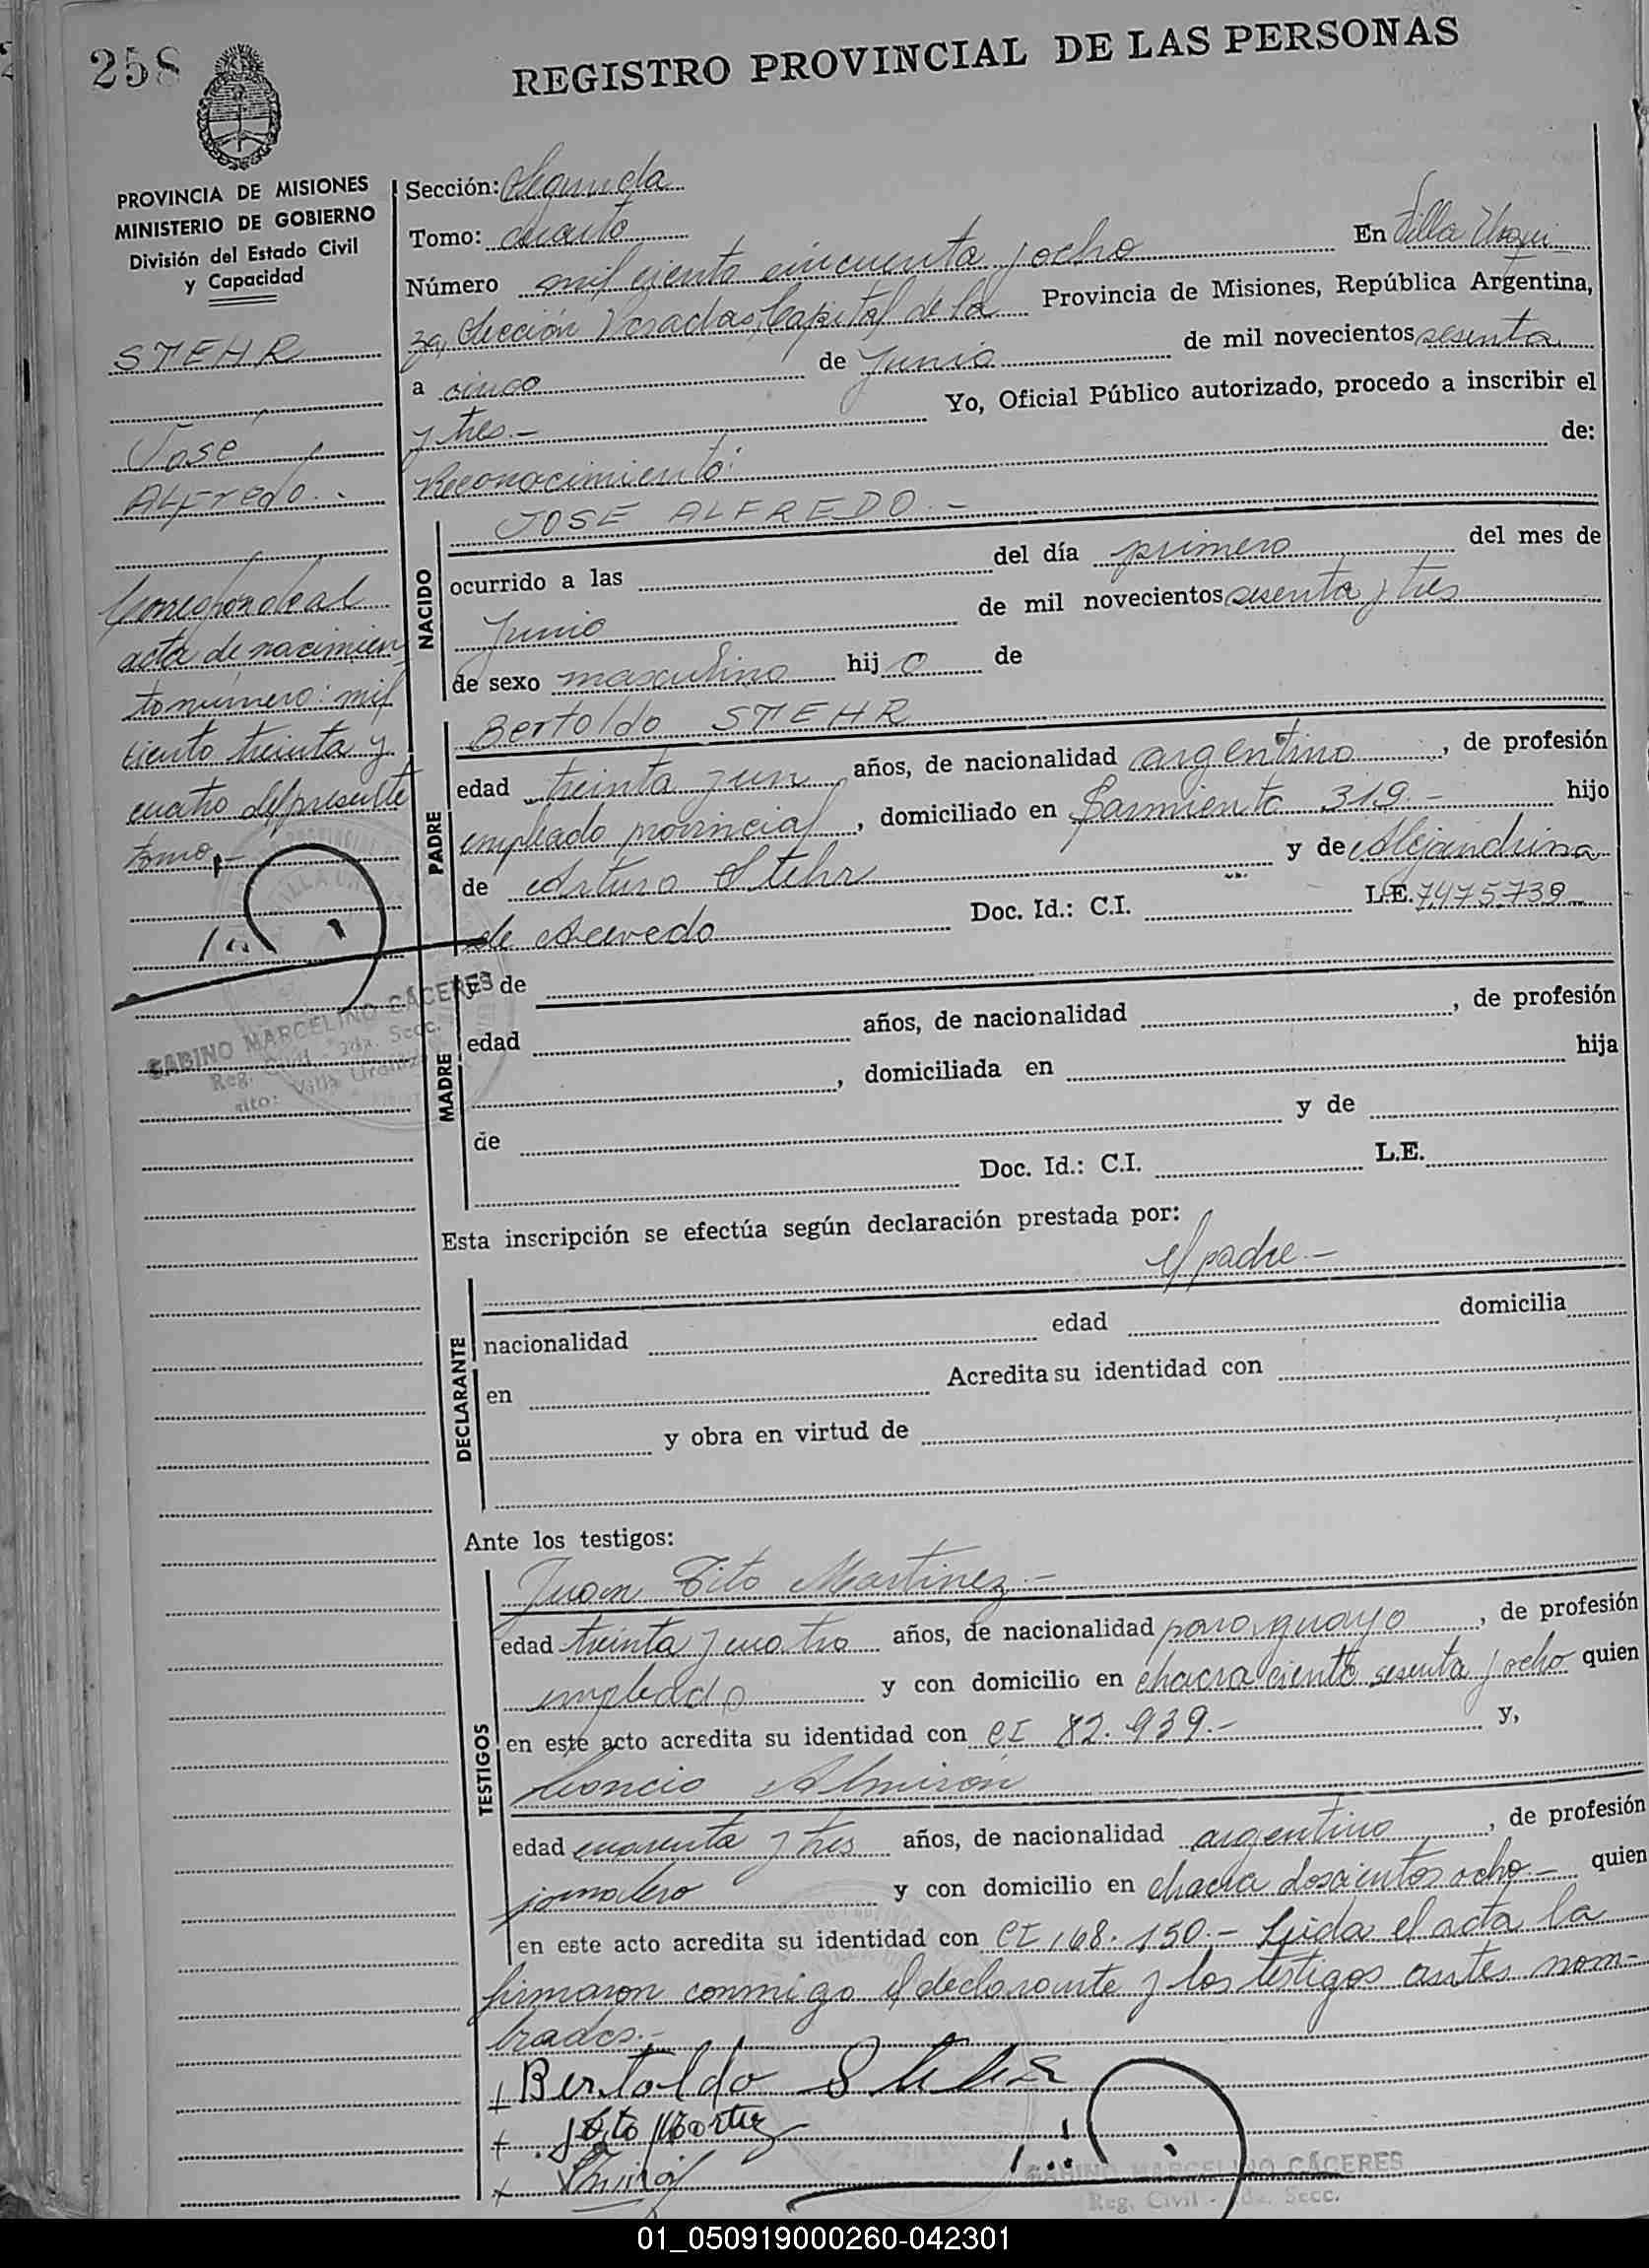 258
REGISTRO PROVINCIAL DE LAS PERSONAS
PROVINCIA DE MISIONES
MINISTERIO DE GOBIERNO
División del Estado Civil
y Capacidad
STEHR
José
Alfredo.-
Corresponde al
acta de nacimien
to número: mil
ciento treinta y
cuatro del presente
tomo.-
SABINO MARCELINO CÁCERES
Reg. Civil - 2da. Secc.
Villa
Sección: Segunda
Tomo: cuarto
Número mil ciento cincuenta y ocho En Villa
2a, Sección Posadas, Capital de la Provincia de Misiones, República Argentina,
a cinco de Junio de mil novecientos sesenta
y tres.- Yo, Oficial Público autorizado, procedo a inscribir el
Reconocimiento: de:
NACIDO
JOSE ALFREDO.-
ocurrido a las del día primero del mes de
Junio de mil novecientos sesenta y tres
de sexo masculino hij o de
PADRE
Bertoldo STEHR
edad treinta y un años, de nacionalidad argentino, de profesión
empleado provincial, domiciliado en Sarmiento 319.- hijo
de Arturo Stehr y de Alejandrina
de Acevedo Doc. Id.: C.I. L.E. 7.475.739
MADRE
y de
edad años, de nacionalidad , de profesión
, domiciliada en hija
de y de
Doc. Id.: C.I. L.E.
Esta inscripción se efectúa según declaración prestada por:
el padre.-
DECLARANTE
nacionalidad edad domicilia
en Acredita su identidad con
y obra en virtud de
Ante los testigos:
TESTIGOS
Juan Tito Martinez.-
edad treinta y cuatro años, de nacionalidad paraguayo, de profesión
empleado y con domicilio en chacra ciento sesenta y ocho quien
en este acto acredita su identidad con CI 82.939.- y,
Leoncio Almirón
edad cuarenta y tres años, de nacionalidad argentino, de profesión
jornalero y con domicilio en chacra doscientos ocho.- quien
en este acto acredita su identidad con CI, 68.150.- Leida el acta la
firmaron conmigo el declarante y los testigos antes nom-
brados.-
Bertoldo Stehr
SABINO MARCELINO CÁCERES
Reg. Civil - 2da. Secc.
01_050919000260-042301